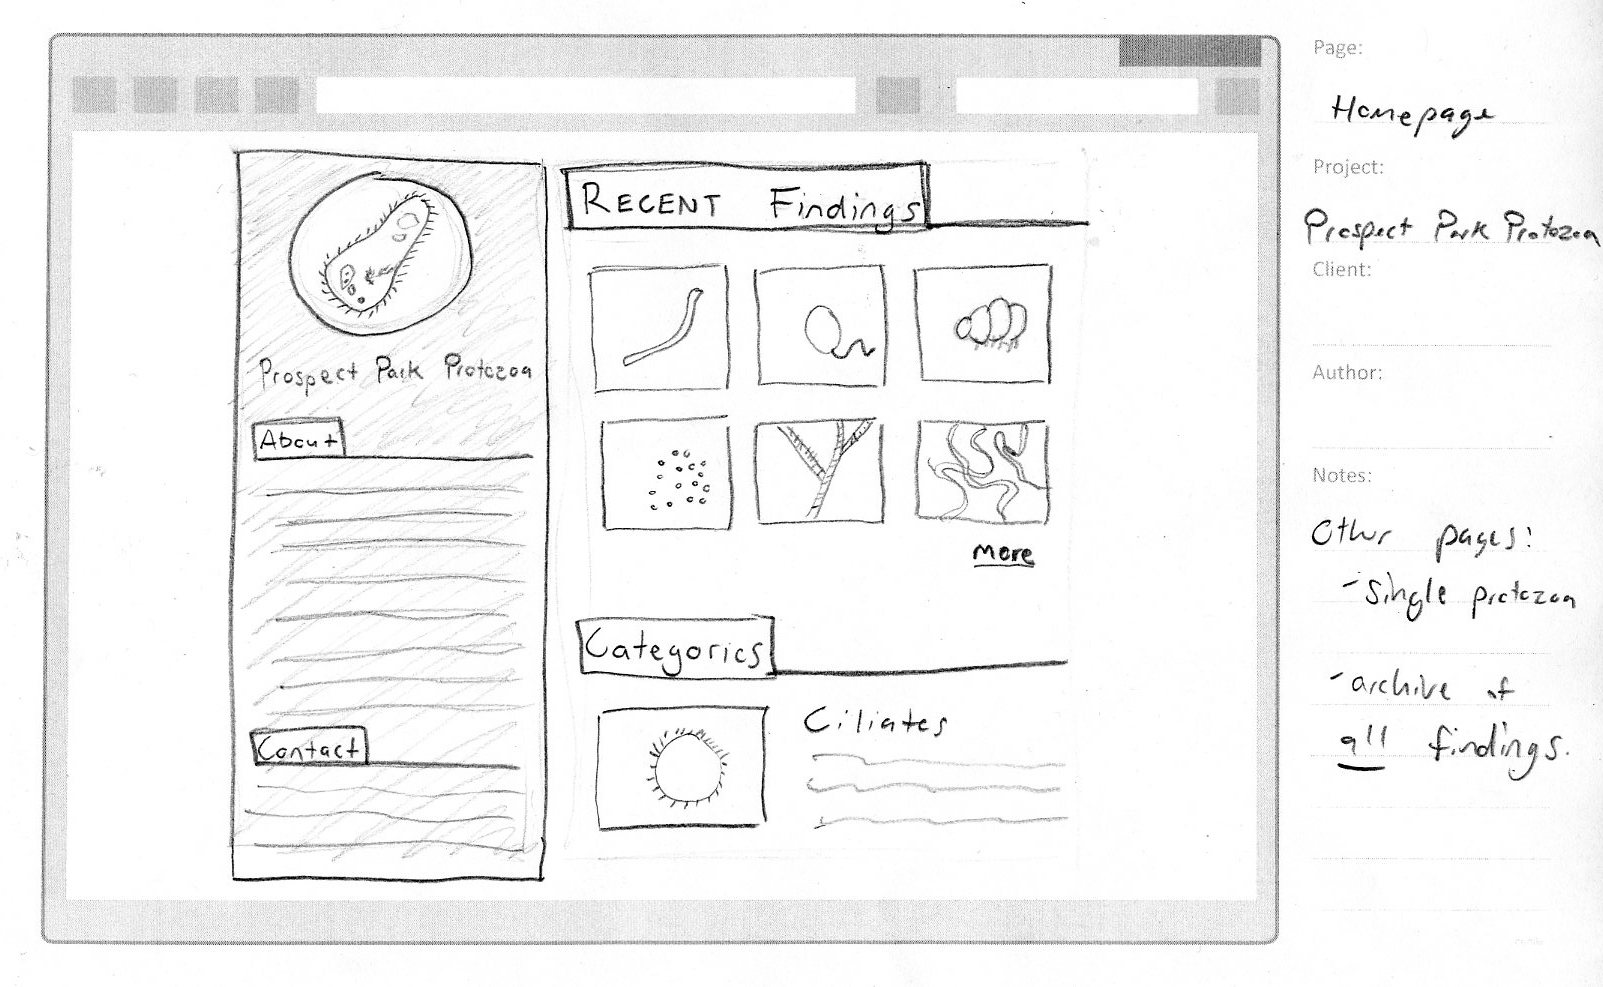 Prospect Park Protozoa
About
Contact
RECENT Findings
more
Categories
Ciliates
Page:
Homepage
Project:
Prospect Park Protozoa
Client:
Author:
Notes:
Other pages:
- Single protozoa
- archive of
all findings.